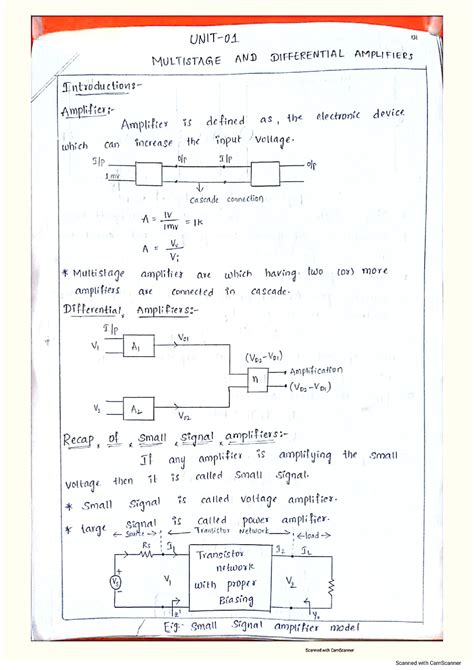 UNIT-01
MULTISTAGE AND DIFFERENTIAL AMPLIFIERS
Introduction:-
Amplifier:-
Amplifier is defined as, the electronic device
which can increase the input voltage.
I/p O/p I/p O/p
1mv
cascade connection
A = 1V/1mv = 1K
A = Vo/Vi
* Multistage amplifier are which having two (or) more
amplifiers are connected in cascade.
Differential Amplifiers:-
I/p
V1 A1 V01
(V02-V01)
n Amplification
(V02-V01)
V2 A2 V02
Recap of small signal amplifiers:-
If any amplifier is amplifying the small
voltage then it is called small signal.
* Small signal is called voltage amplifier.
* large signal is called power amplifier.
source Transistor Network load
Rs I1 I2 IL
Vs V1 Transistor network with proper Biasing V2
Fig: Small Signal amplifier model
Scanned with CamScanner
Scanned with CamScanner